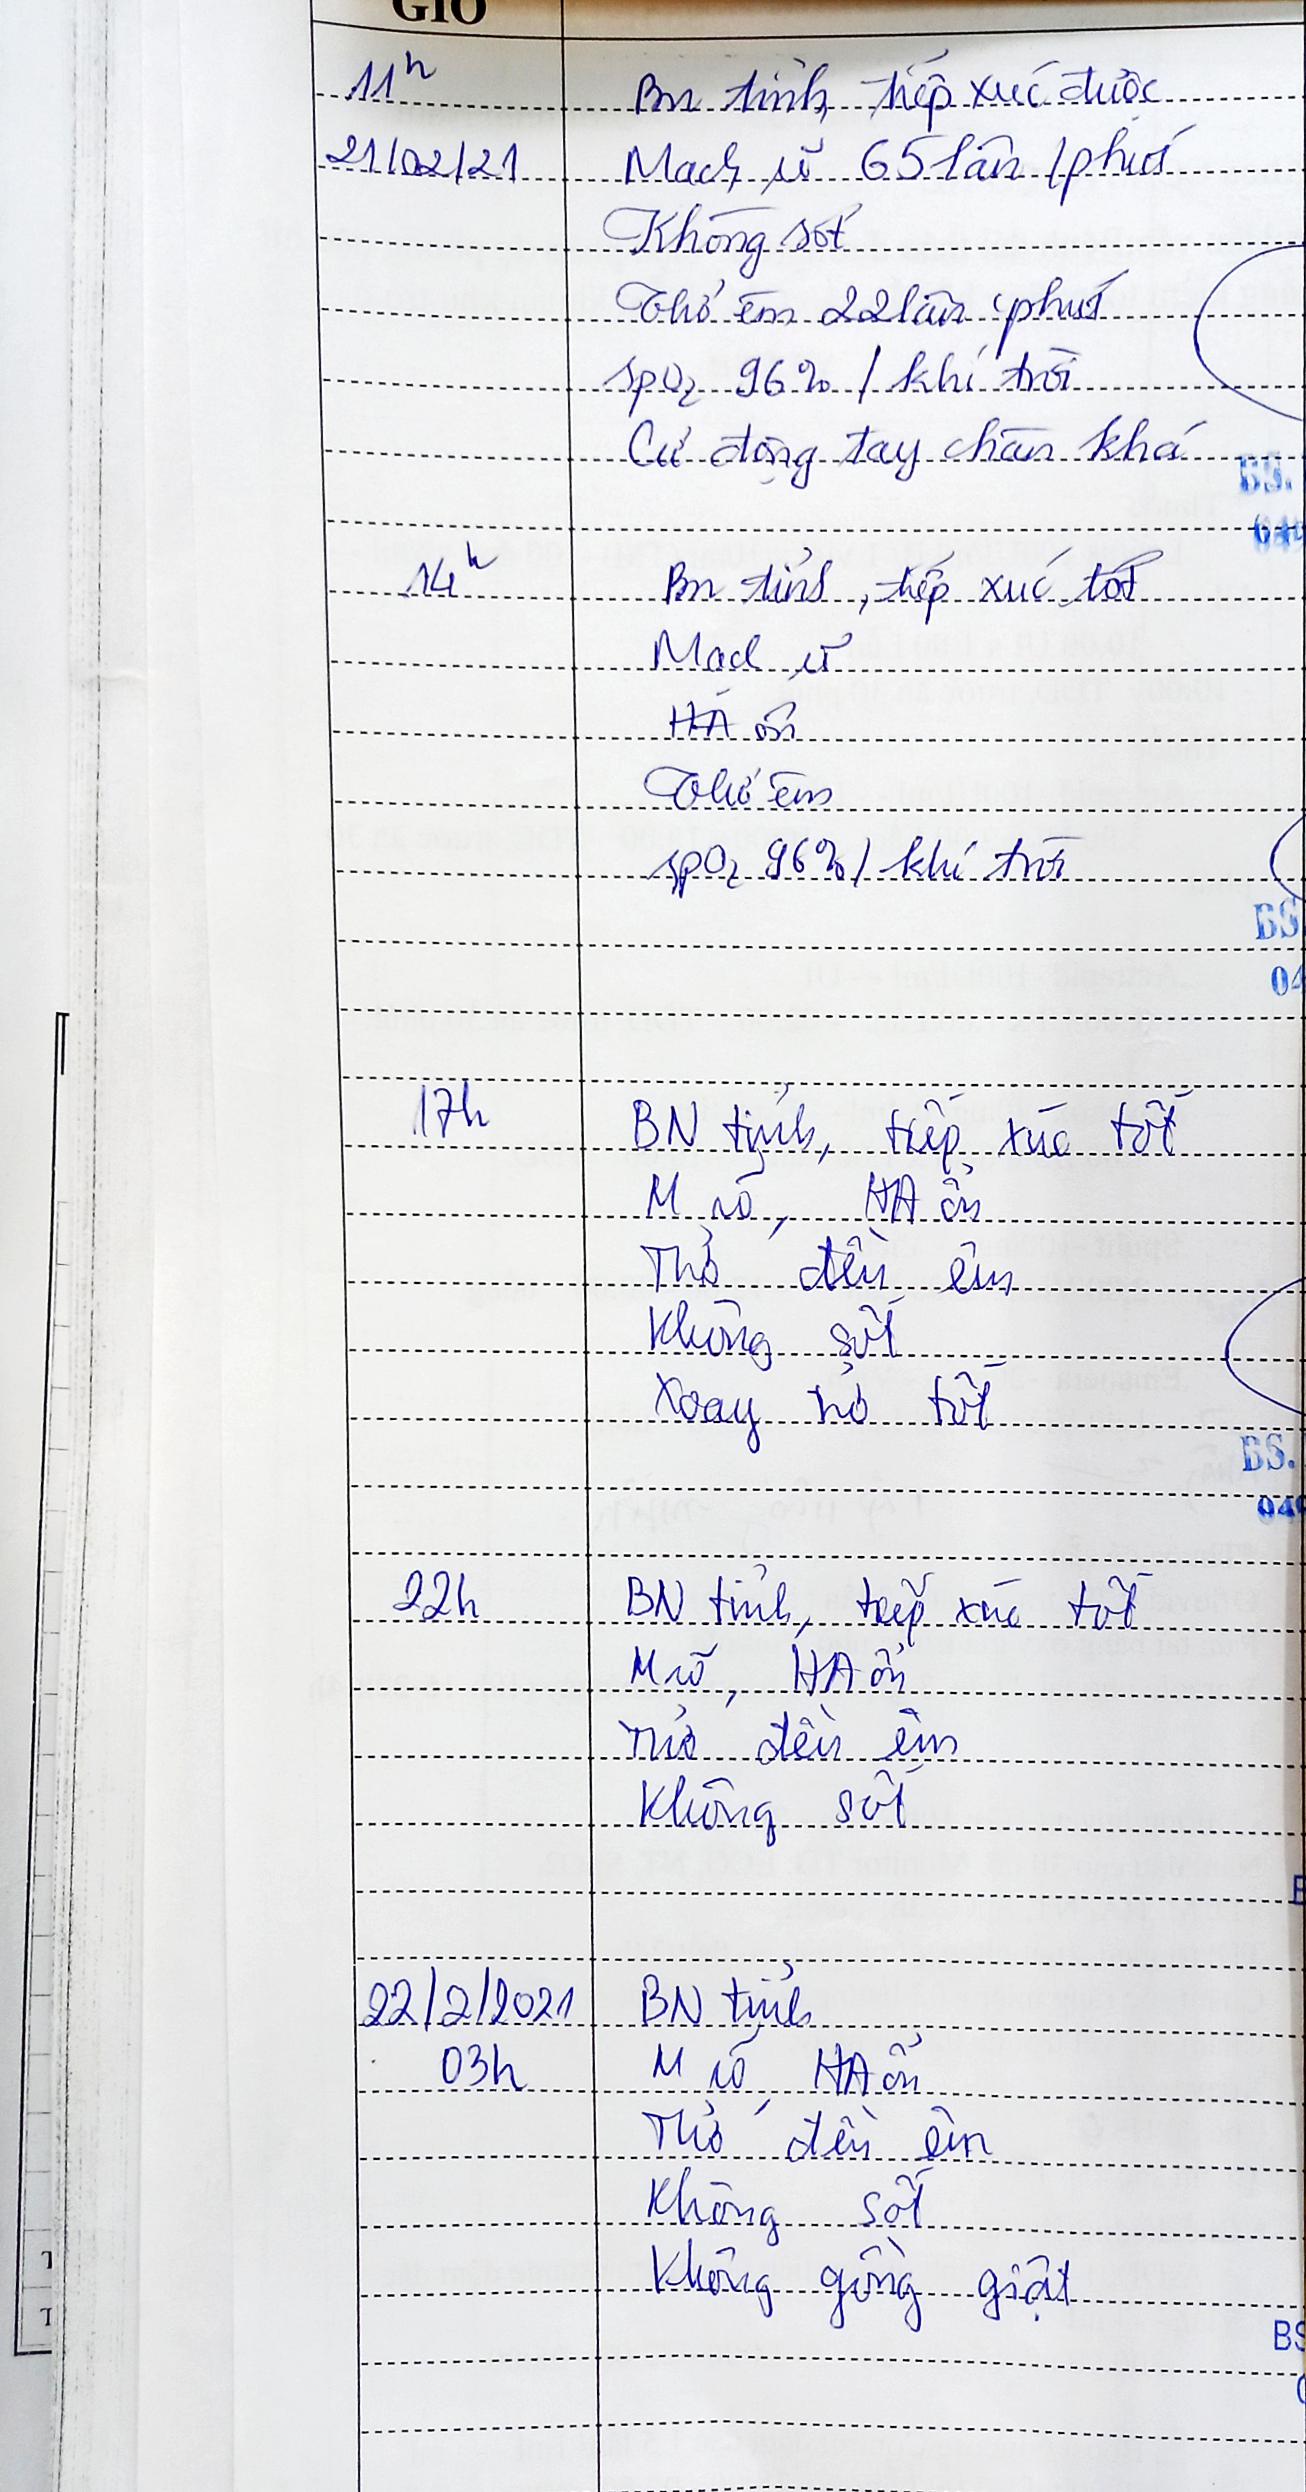 GIỜ
11h Bn tỉnh, tiếp xúc được
21/02/21 Mạch rõ 65 lần /phút
Không sốt
Thở êm 22 lần /phút
spO2 96% / khí trời
Cử động tay chân khá
BS.
049
14h Bn tỉnh, tiếp xúc tốt
Mạch rõ
HA ổn
Thở êm
spO2 96% / khí trời
BS
04
17h BN tỉnh, tiếp xúc tốt
M rõ, HA ổn
Thở đều êm
Không sốt
Xoay trở tốt
BS.
049
22h BN tỉnh, tiếp xúc tốt
M rõ, HA ổn
Thở đều êm
Không sốt
22/2/2021 BN tỉnh
03h M rõ, HA ổn
Thở đều êm
Không sốt
Không gồng giật
BS